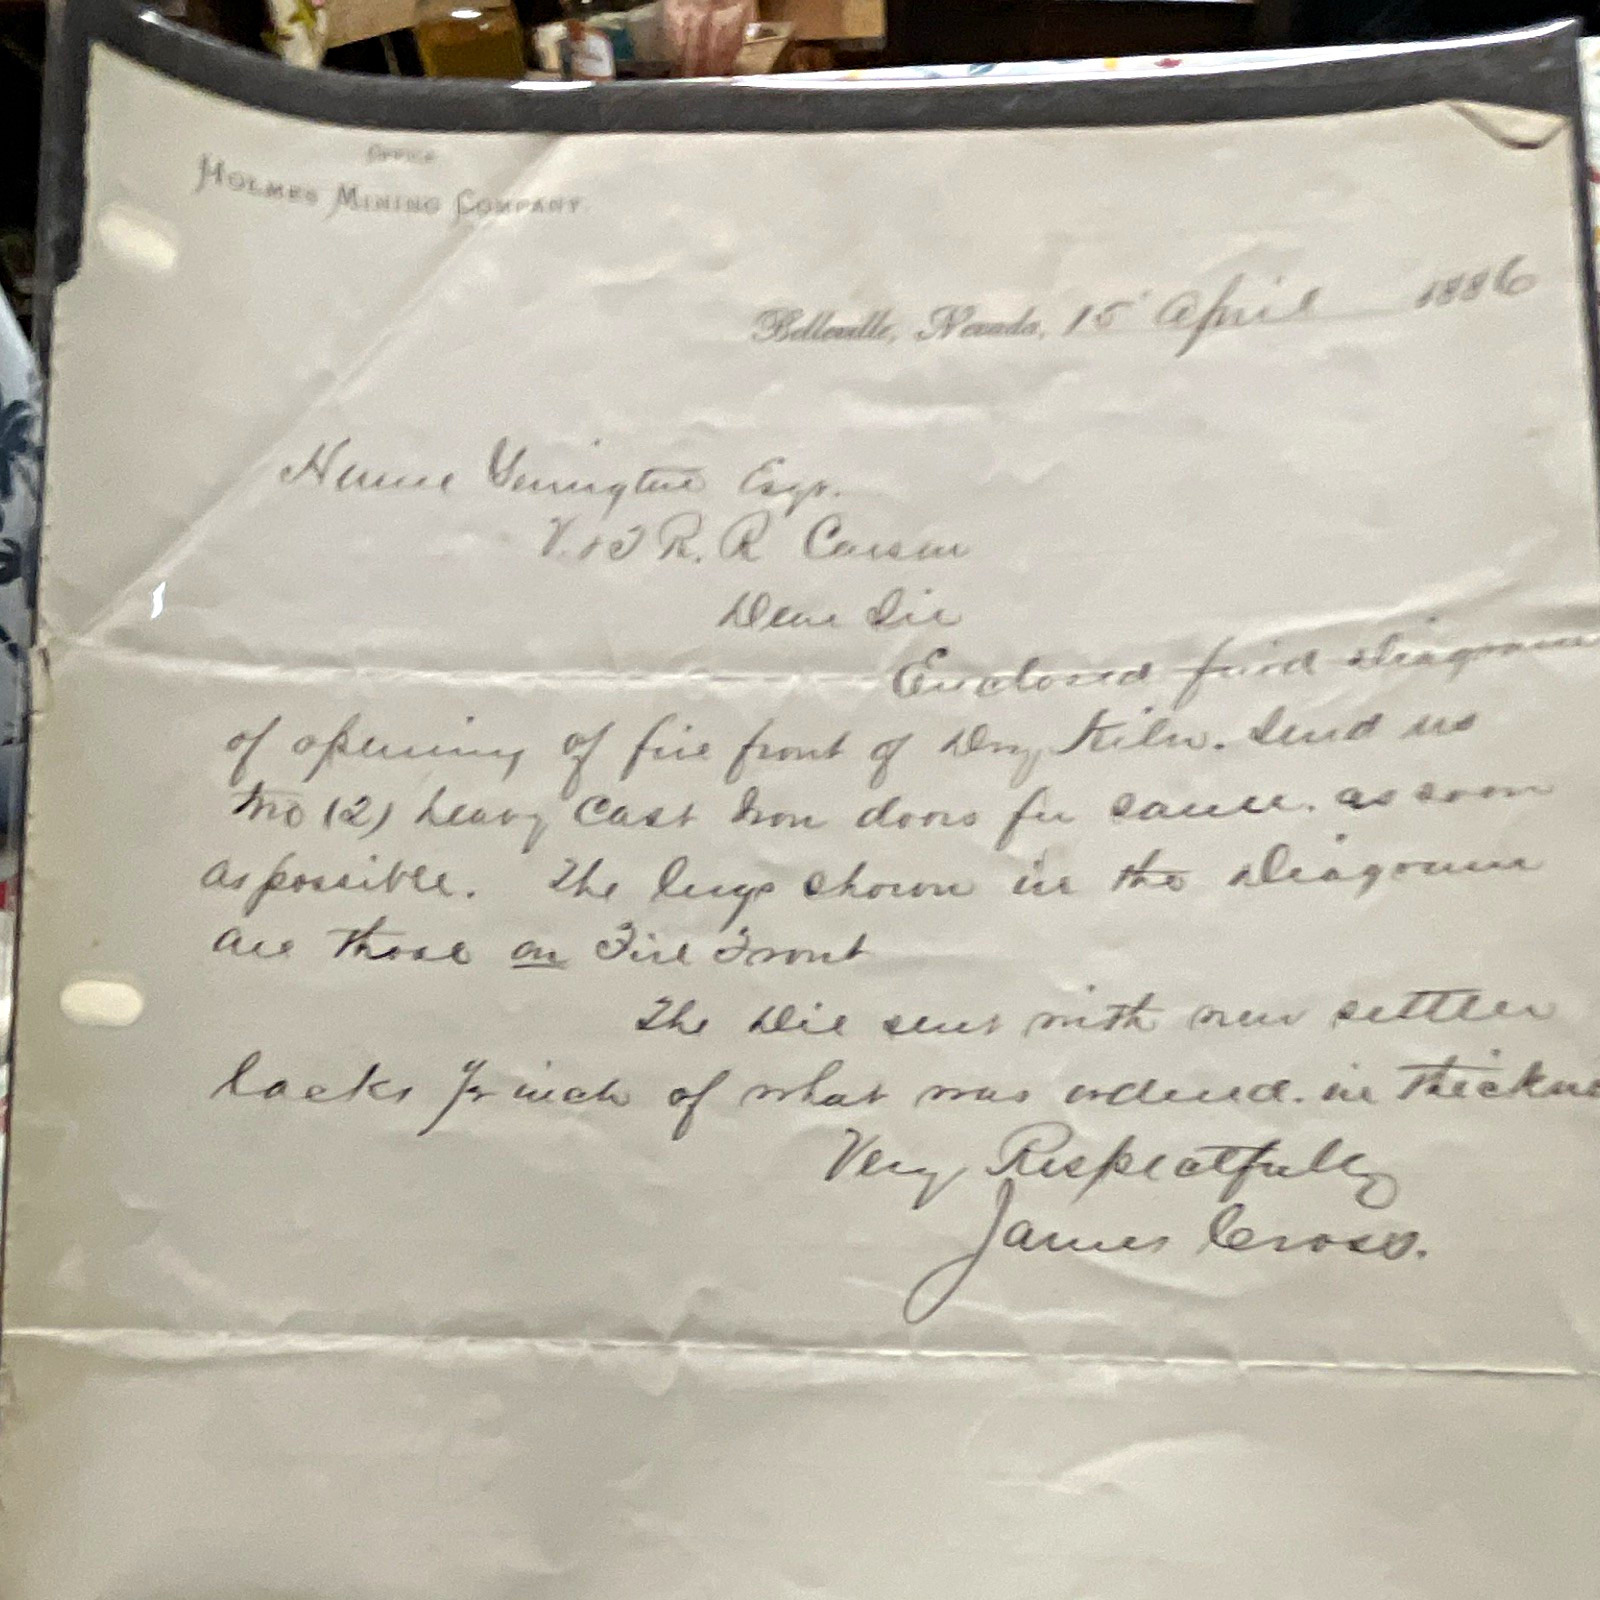 OFFICE
HOLMES MINING COMPANY.
Belleville, Nevada, 15 April 1886
Hume Yerington Esqr.
V. & T R. R Carson
Dear Sir
Enclosed find diagram
of opening of fire front of Dry Kiln. Send us
two (2) heavy Cast Iron doors for same. as soon
as possible. The lugs shown in the diagram
are those on Fire Front
The Die sent with new settler
lacks inch of what was ordered. in thickne
Very Respectfully
James Cross.